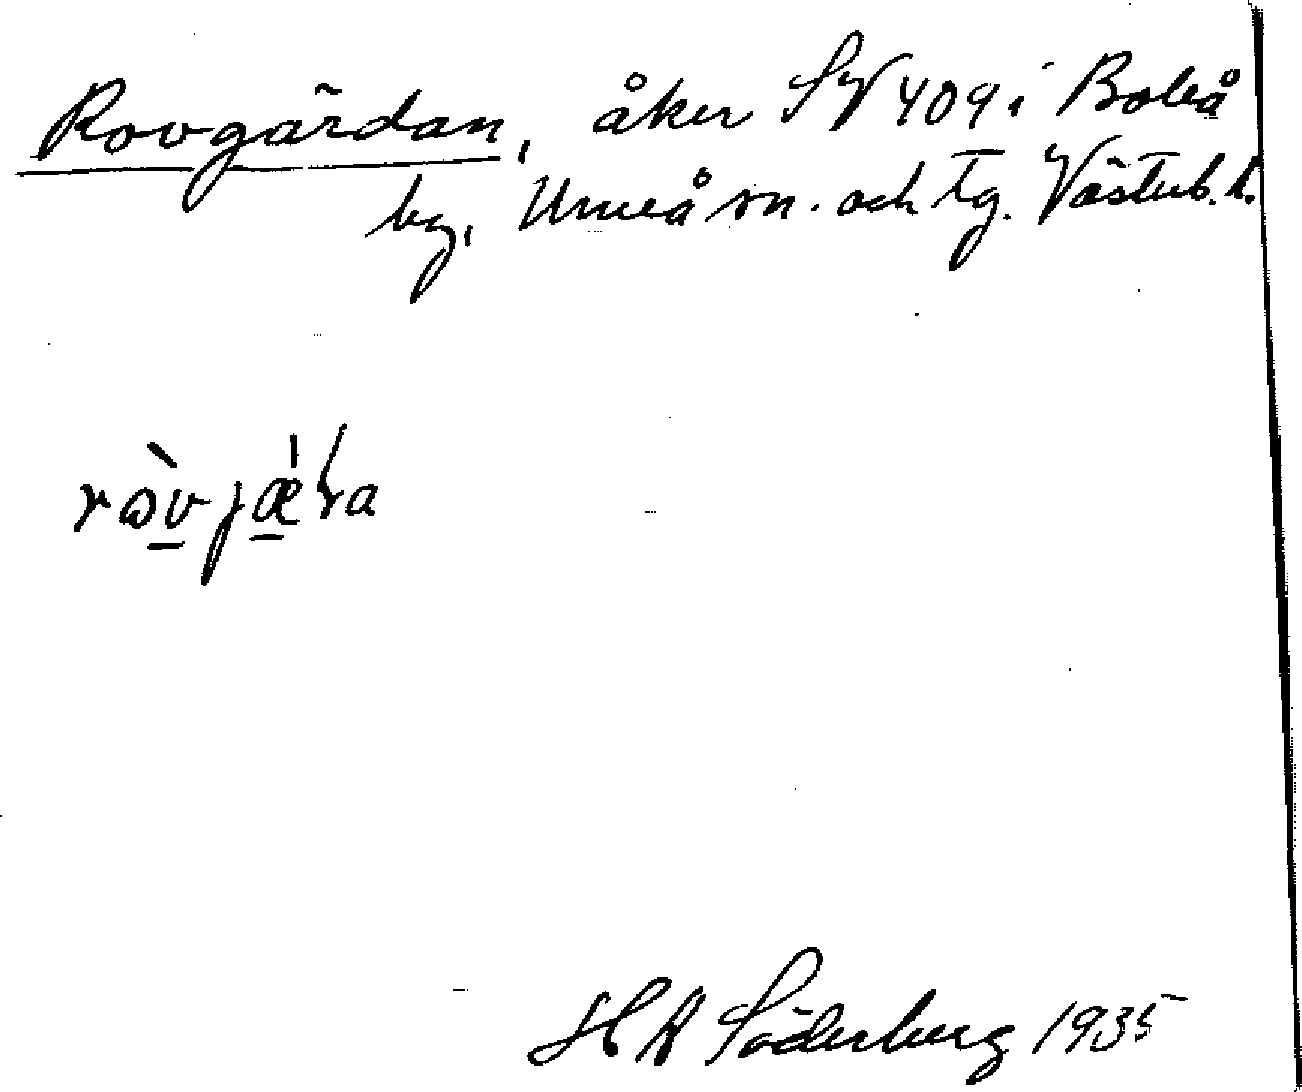 Rovgärdan, åker SV 409 i Boleå
by, Umeå sn. och tg. Västerb. l.
HA Söderberg 1935